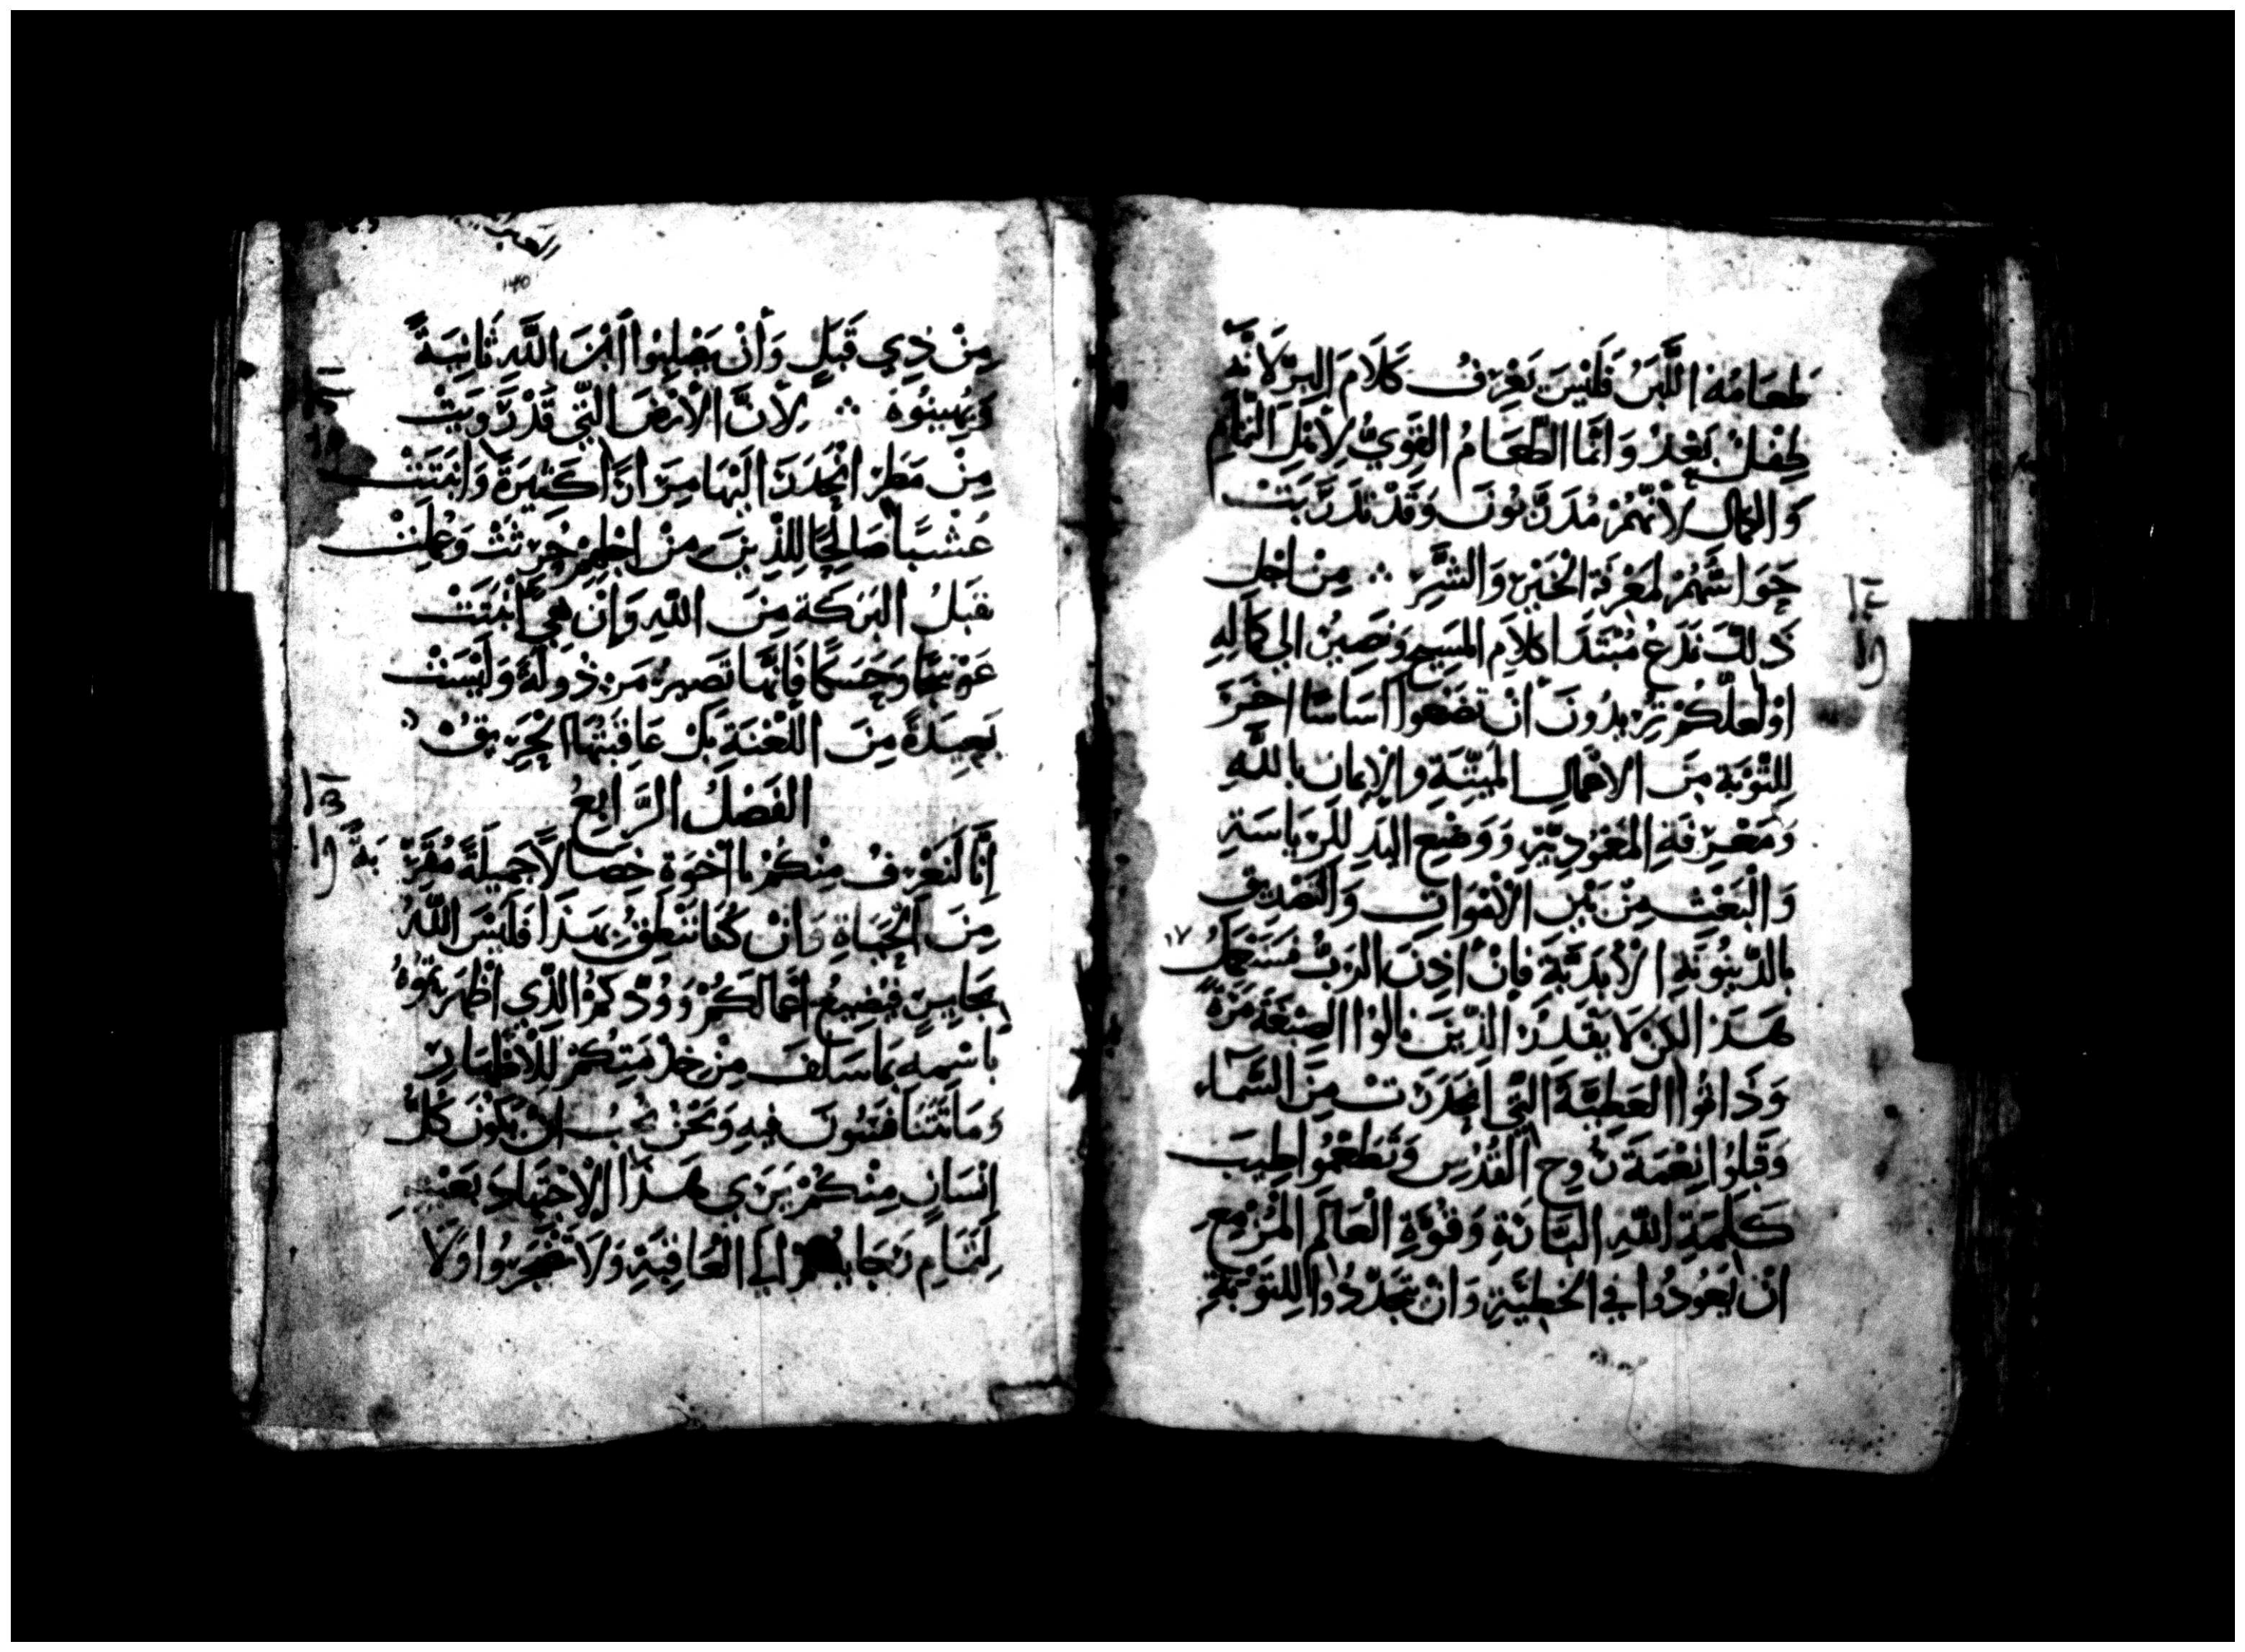 طَعَامُهُ اللَّبَنُ فَلَيْسَ يَعْرِفُ كَلَامَ البِرّ لَانَّه
طِفْلٌ بَعْدُ وَانَّمَا الطَّعَامُ القَوِيُّ لِأَهْلِ التَّمَامِ
وَالكمَالِ لأنَّهُمْ مُدَرَّبُونَ وَقَدْ تَدَرَّبَتْ
حَوَاسُّهُمْ لمَعْرِفَة الخَيْرِ وَالشَّرِّ ⁘ مِنْ اجْلِ
ذَلِكَ نَدَعُ مُبْتَدَا كَلَامِ المَسِيحِ وَنَصِيرُ الي كَمَالِهِ
اوْ لَعَلَّكُمْ تُرِيدُونَ أَنْ تَضَعُوا اسَاسًا اخَرَ
لِلتَّوْبَةِ مِنَ الاعْمَالِ المَيِّتَةِ وَالإِيمَانِ باللهِ
وَمَعْرِفَةِ المَعْمُودِيَّةِ وَوَضْعِ اليَدِ لِلرِيَاسَةِ
وَالْبَعْثِ مِنْ بَيْنِ الأَمْوَاتِ وَالتَصْدِيقِ
بالدَّيْنُونَةِ الأَبَدِيَّةِ فَإِنْ أَذِنَ الرَبُّ فَسَنَعْمَلُ
١٧
هَذَا لكِنْ لَا يَقْدِرُ الذِينَ نالُوا الصِبْغَةَ مَرَّةً
وَذَاقُوا العَطِيَّةَ التِي انْحَدَرَتْ مِنَ السَّمَآءِ
وَقَبِلُوا نِعْمَةَ رُوحِ القُدُسِ وَتَطَعَّمُوا طِيبَ
كَلِمَةِ اللهِ البَّارَةِ وَقُوَّةِ الْعَالَمِ المُزْمِعِ
انْ يَعُودُوا فِي الخَطِيَّةِ وَانْ يَتَجَدَّدُوا لِلتَوْبَةِ
مِنْ ذِي قَبْلٍ وَأَنْ يَصْلِبُوا ابْنَ اللَّهِ ثَانِيَةً
وَيُهِينُوهُ ⁘ لِأَنَّ الأَرْضَ التِي قَدْ رَوِيَتْ
مِنْ مَطَرٍ انْحَدَرَ الَيْهَا مِرَارًا كَثِيرَةً وَانْبَتَتْ
عُشْبًا صَالِحًا لِلذِينَ مِنْ اجْلِهِمْ حُرِثَتْ وَعُمِلَتْ
تقبَلُ البَرَكَةَ مِنَ اللهِ وَإِنْ هِيَ أَنْبَتَتْ
عَوْسَجًا وَحَسَكًا فَإِنَّهَا تَصِيرُ مَرْذُولَةً وَلَيْسَتْ
بَعِيدَةً مِنَ اللَّعْنَةِ بَلْ عَاقِبَتُهَا الْحَرِيقُ
الفَصْلُ الرَّابِعُ
إِنَّا لَنَعْرِفُ مِنْكُمْ يا اخْوَةِ خِصَالًا جَمِيلَةً مُقَرِّبَةً
مِنَ الْحَيَاةِ وَانْ كُنَّا نَنْطِقُ بِهَذَا فَلَيْسَ اللهُ
بجَايِرٍ فَيُضِيعَ اعْمَالَكُمْ وَوُدَّكُمُ الذِي اظْهَرْتمُوهُ
باسْمِهِ بمَا سَلَفَ مِنْ خِدْمَتِكُمْ لِلأَطْهَارِ
وَمَا تَسْتَانفُونَ فِيهِ وَنَحْنُ نُحِبُّ انْ يَكُونَ كُلُّ
إِنْسَانٍ مِنْكُمْ يَرَى هَذَا الاجْتِهَادَ بِعَيْنِهِ
لِتَمَامِ رَجَايكُمْ الي العَاقِبَةِ وَلَا تَضْجَرُوا وَلَا